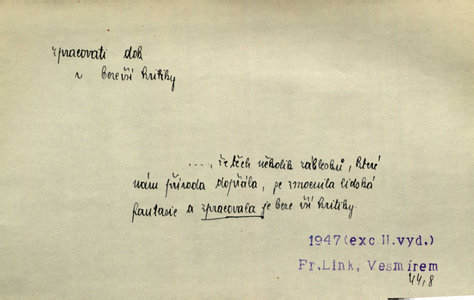 zpracovati dok
v beze vší kritiky
..., že těch několik záblesků, které
nám příroda dopřála, se zmocnila lidská
fantasie a zpracovala je beze vší kritiky.
1947 (exc. II. vyd.)
Fr. Link, Vesmírem
44,8